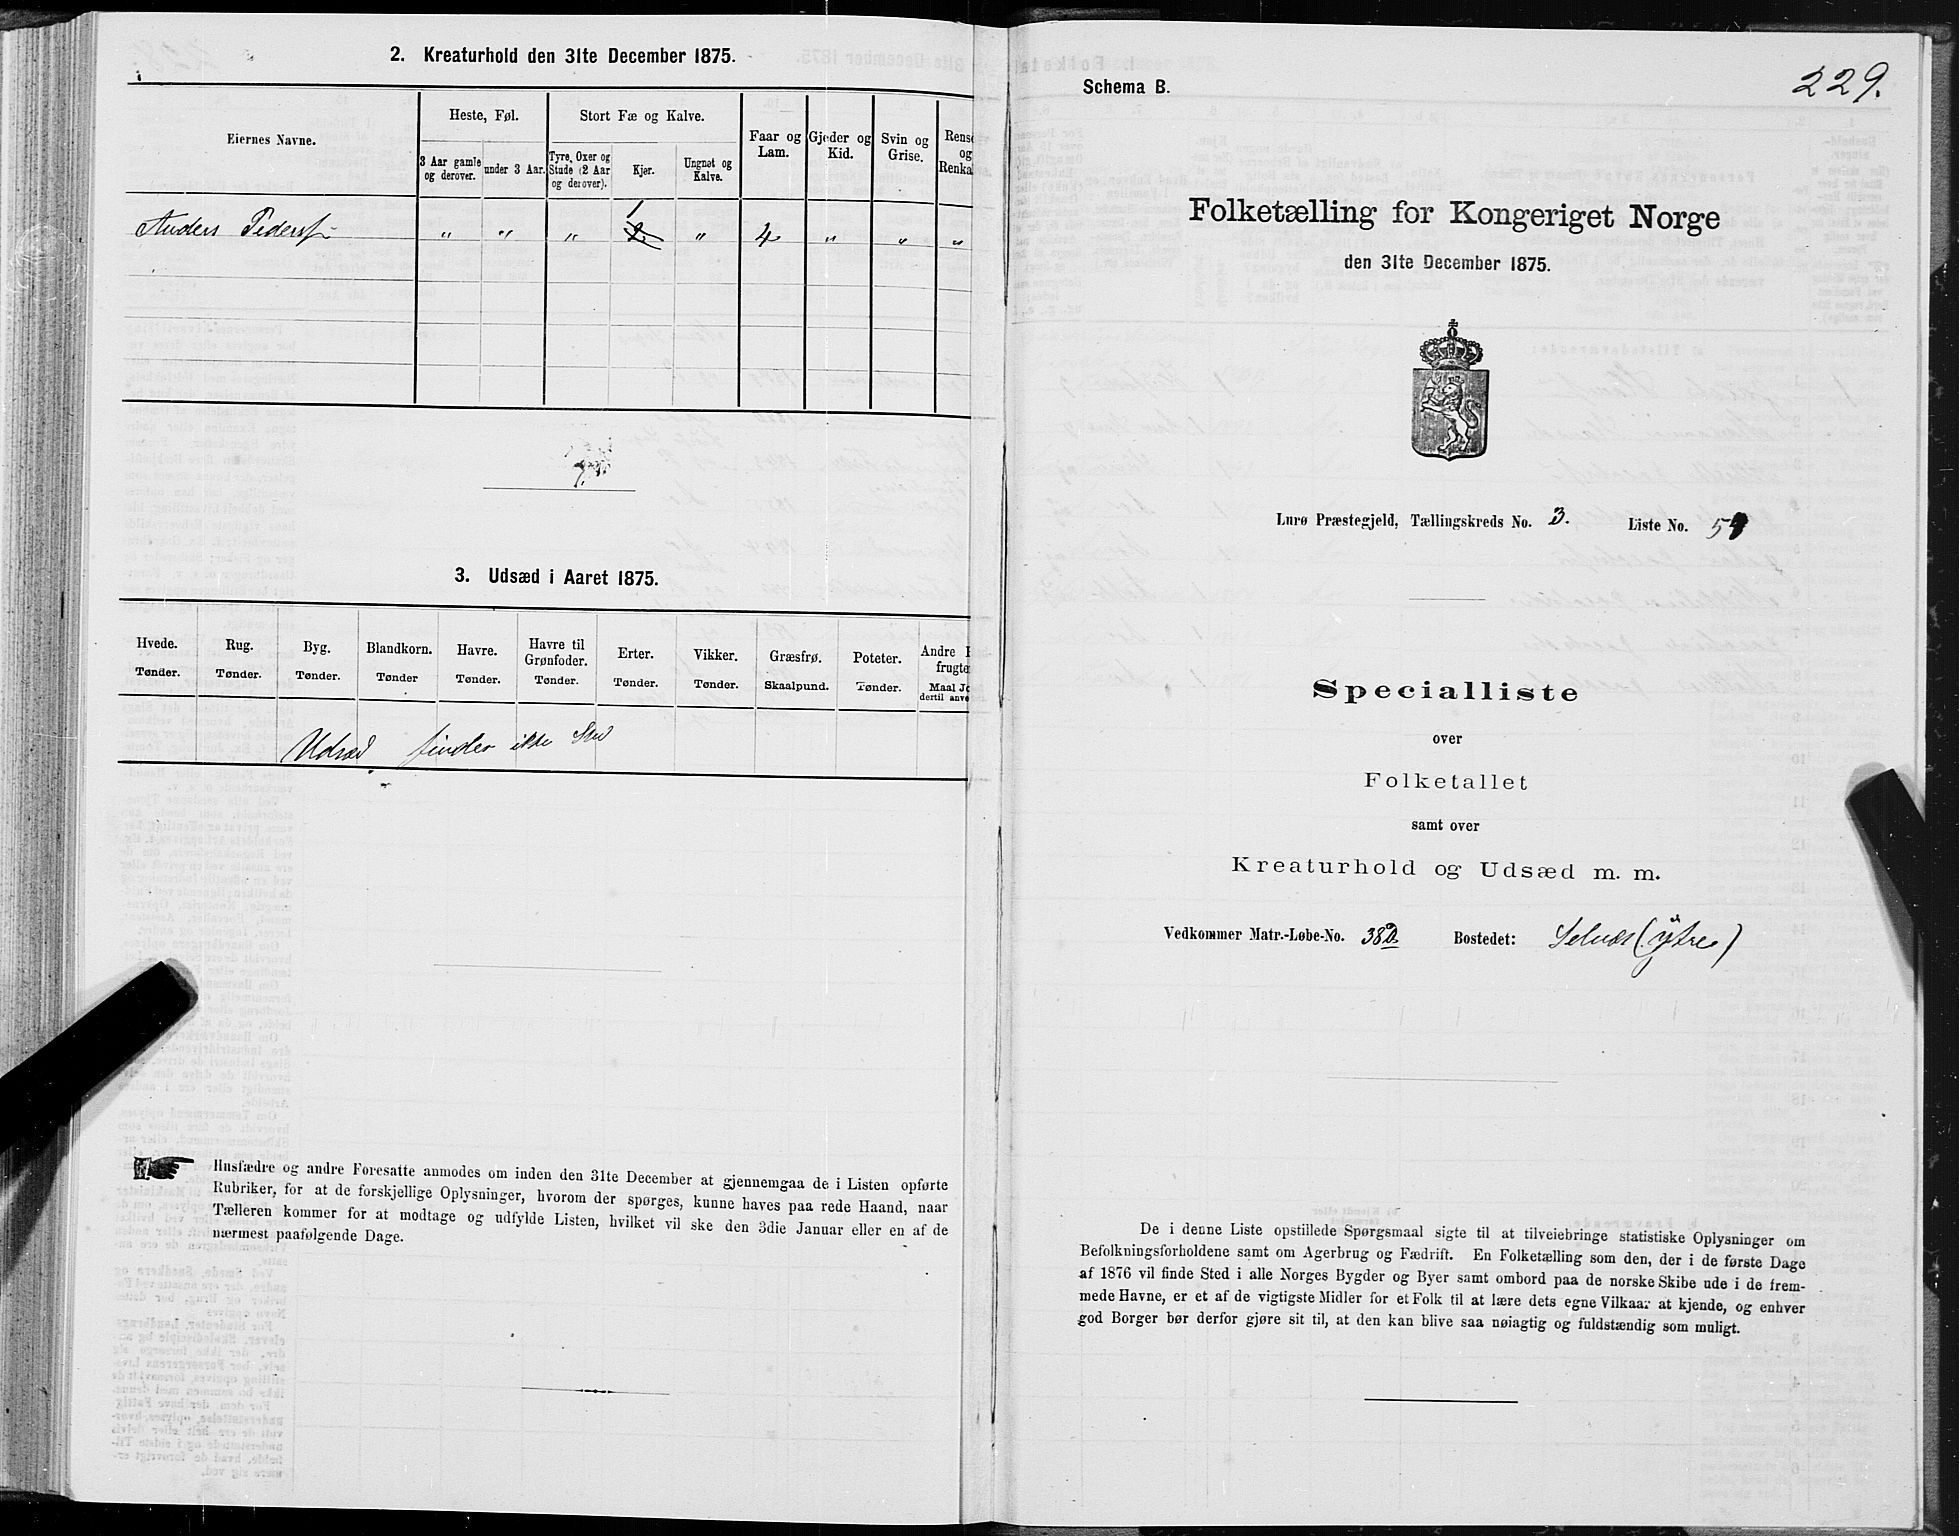 2. Kreaturhold den 31te December 1875.
Eiernes Navne.
Heste, Føl.
Stort Fæ og Kalve.
Faar og Lam.
Gjeder og Kid.
Svin og Grise.
Rens
og
Renka
3 Aar gamle og derover.
under 3 Aar.
Tyre, Oxer og Stude (2 Aar og derover).
Kjer.
Ungnøt og Kalve.
1
Anders Peders " " " 2 " 4 " " "
3. Udsæd i Aaret 1875.
Hvede. Rug. Byg. Blandkorn. Havre. Havre til Grønfoder. Erter. Vikker. Græsfrø. Poteter. Andre
frugte
Tønder. Tønder. Tønder. Tønder Tønder. Tønder. Tønder. Tønder. Skaalpund. Tønder. Maal Jo
dertil anve
Udsæd finder ikke Sted
Husfædre og andre Foresatte anmodes om inden den 31te December at gjennemgaa de i Listen opførte
Rubriker, for at de forskjellige Oplysninger, hvorom der spørges, kunne haves paa rede Haand, naar
Tælleren kommer for at modtage og udfylde Listen, hvilket vil ske den 3die Januar eller en af de
nærmest paafølgende Dage.
229.
Schema B.
Folketælling for Kongeriget Norge
den 31te December 1875.
Lurø Præstegjeld, Tællingskreds No. 3. Liste No.
Specialliste
over
Folketallet
samt over
Kreaturhold og Udsæd m. m.
Vedkommer Matr.-Løbe-No. 38 Bostedet: Selnæs (ytre)
De i denne Liste opstillede Spørgsmaal sigte til at tilveiebringe statistiske Oplysninger om
Befolkningsforholdene samt om Agerbrug og Fædrift. En Folketælling som den, der i de første Dage
af 1876 vil finde Sted i alle Norges Bygder og Byer samt ombord paa de norske Skibe ude i de frem-
mede Havne, er et af de vigtigste Midler for et Folk til at lære dets egne Vilkaar at kjende, og enhver
god Borger bør derfor gjøre sit til, at den kan blive saa nøiagtig og fuldstændig som muligt.